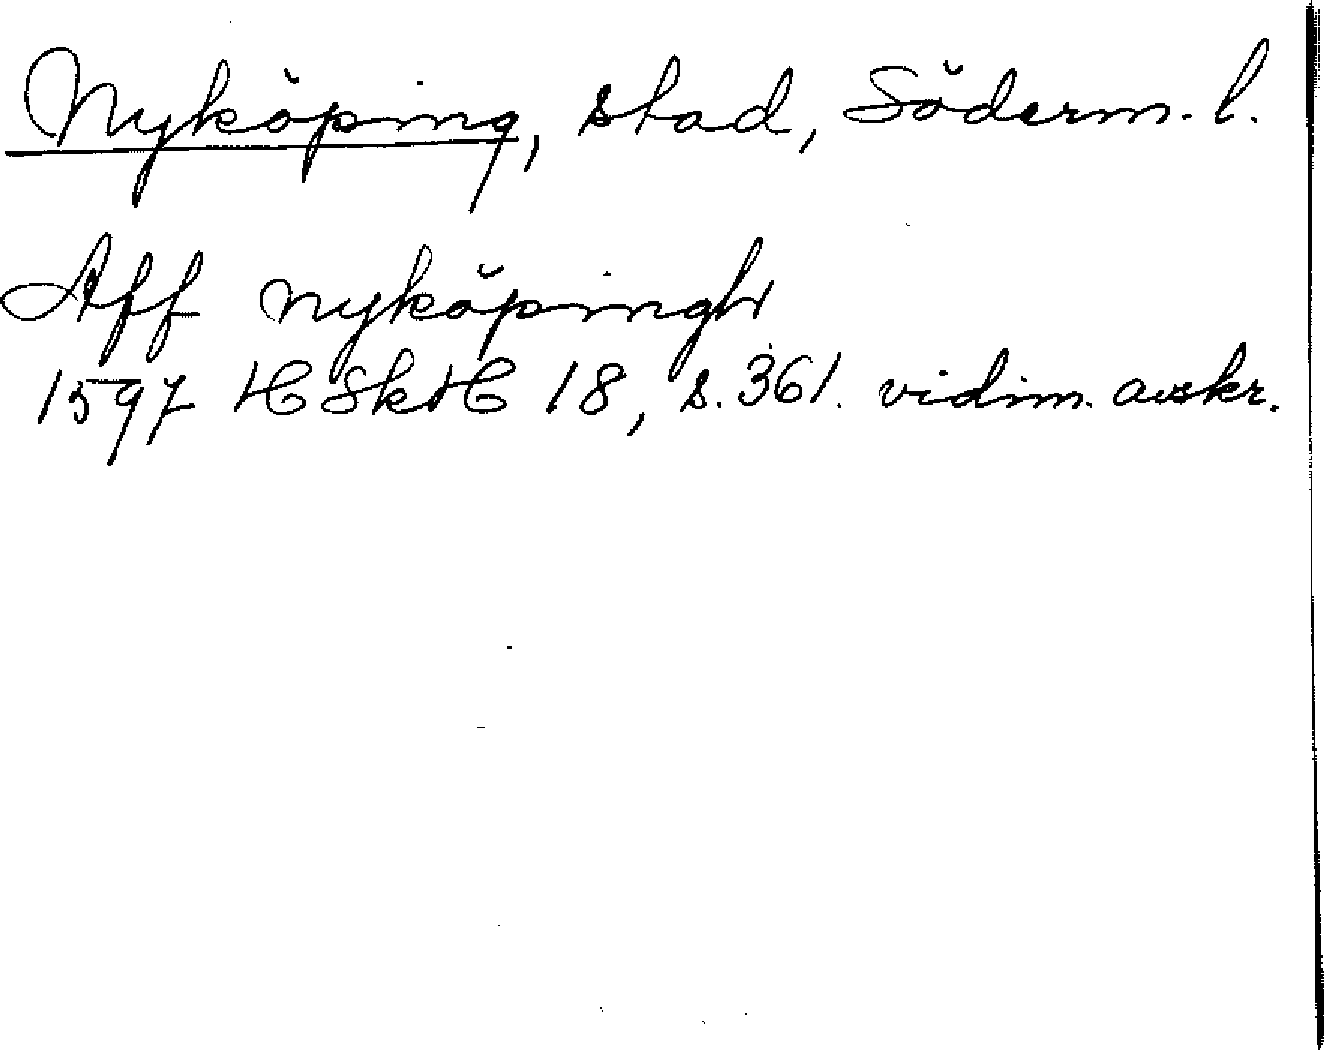 Nyköping, stad, Söderm. l.
Aff nyköpingh
1597 HSkH 18, s. 361. vidim. avskr.